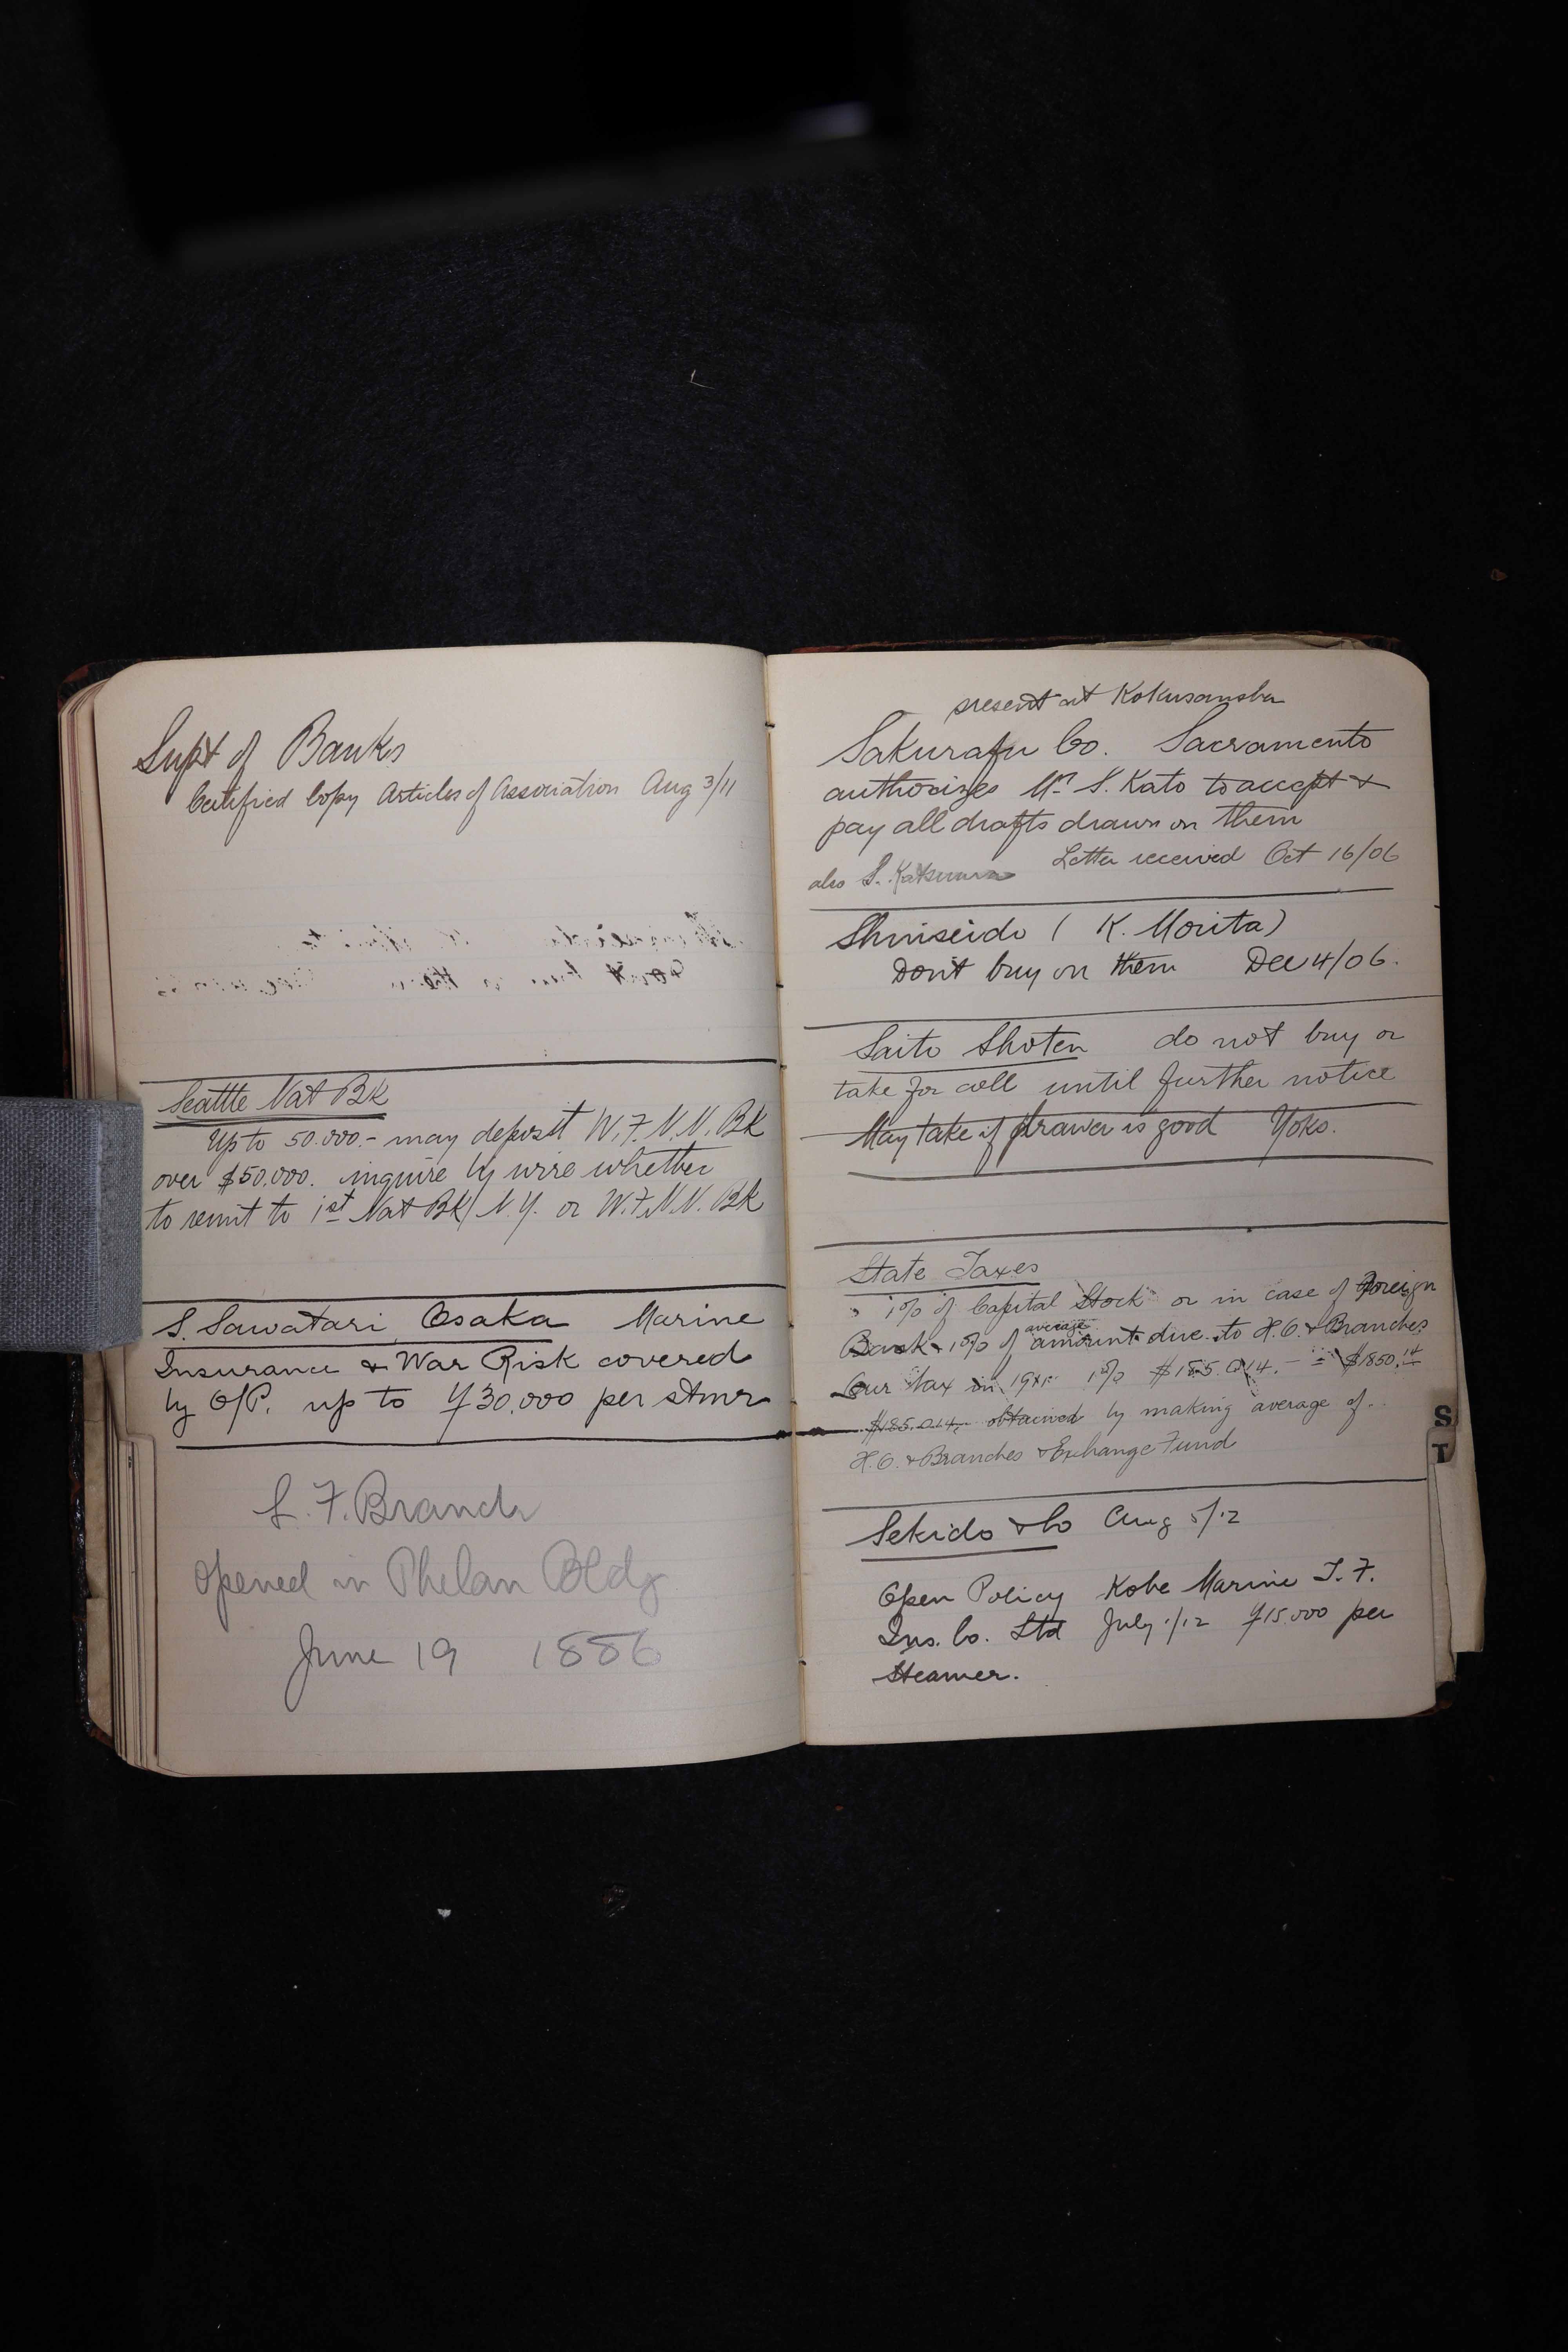 Supt of Banks
Certified Copy Articles of Association Aug 3/11
Seattle Nat Bk
Up to 50.000.- may deposit W.F.N.N. Bk
over $50,000. inquire by wire whether
to remit to 1st Nat Bk N.Y. or W.F.N.N. Bk
S. Sawatari Osaka Marine
Insurance & War Risk covered
by O/P. up to ¥30,000 per stmr
S. F. Branch
opened in Phelan Bldg
June 19 1886
present at Kokusansha
Co. Sacramento
authorizes Mr. S. Kato to accept &
pay all drafts drawn on them
Letter received Oct 16/06
also S.
Shinseido ( K. Morita )
Don't buy on them Dec 4/06.
Saito Shoten do not buy or
take for coll until further notice
May take if drawer is good Yoko.
State Taxes
1% of Capital Stock or in case of Foreign
average
Bank 1% of amount due to H.O. & Branches
Our tax in 1% $185.014.- = $1850.14
$185.014.- obtained by making average of
H.O. & Branches & Exchange Fund
Sekido & Co Aug 5/12
Open Policy Kobe Marine T. F.
Ins. Co. Ltd July 1/12 ¥15.000 per
Steamer.
S
T